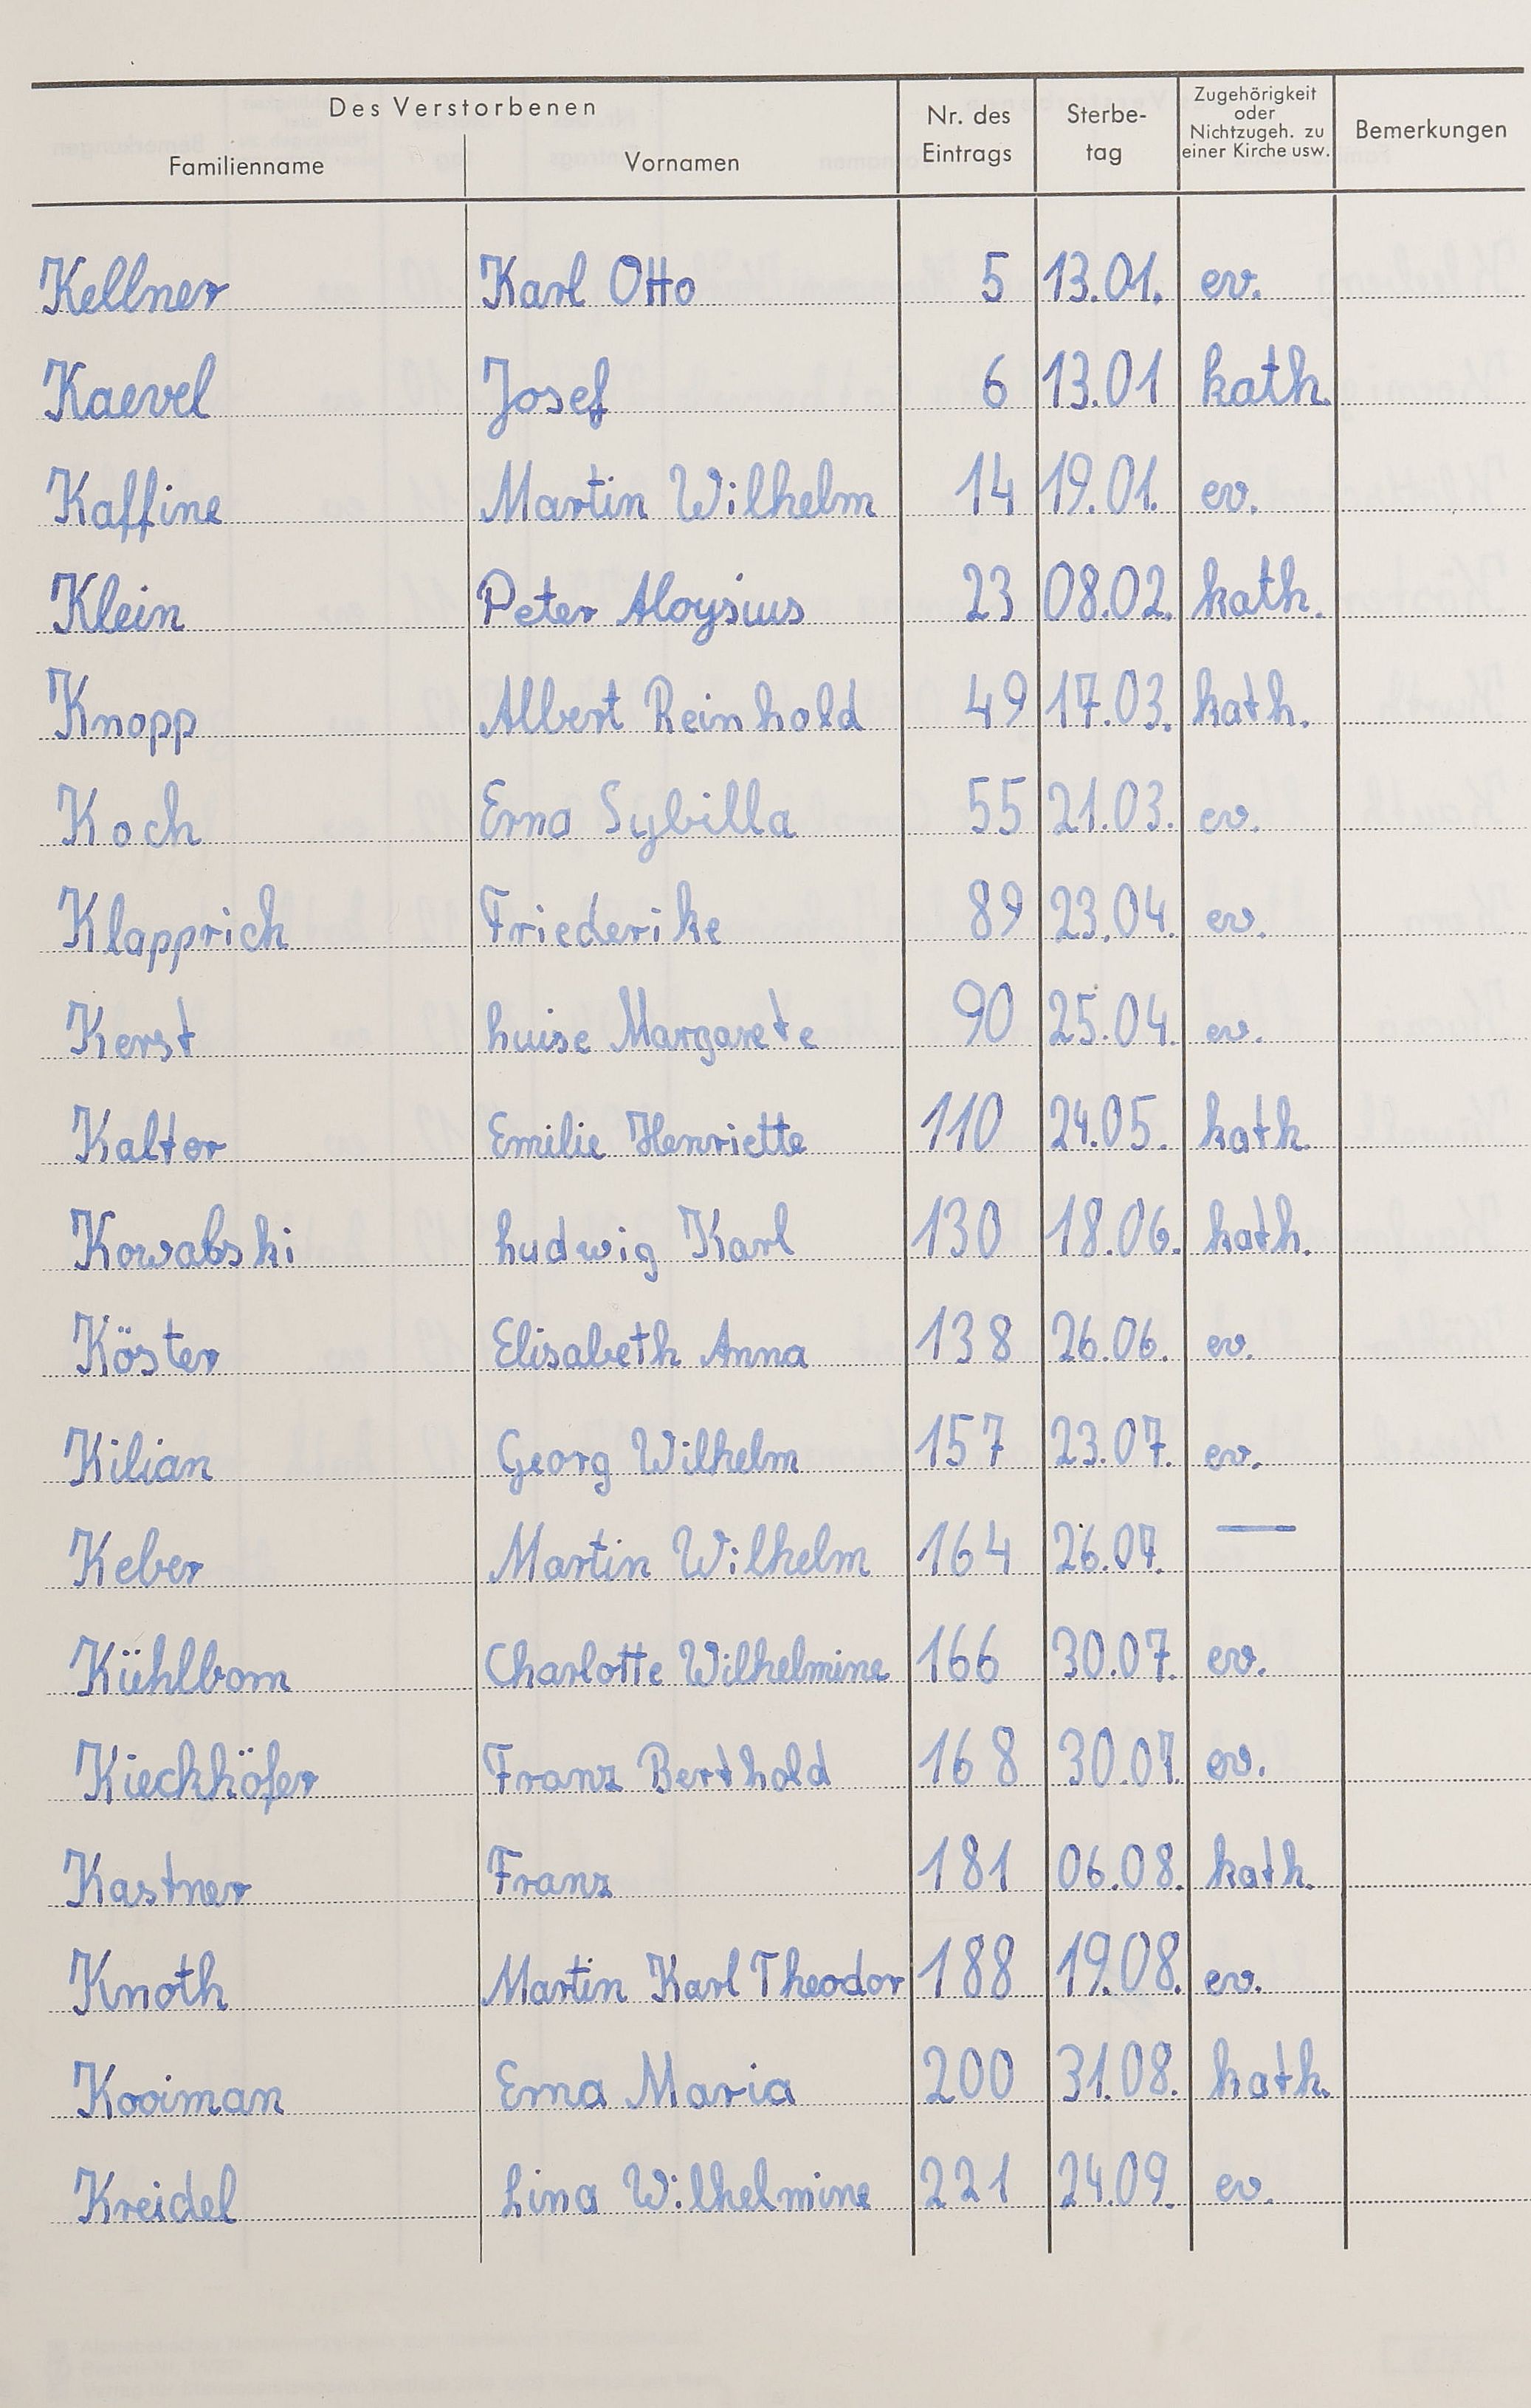 Des Verstorbenen
Familienname Vornamen Nr. des Eintrags Sterbe-tag Zugehörigkeit oder Nichtzugeh. zu einer Kirche usw. Bemerkungen
Kellner Karl Otto 5 13.01. ev.
Kaevel Josef 6 13.01 kath.
Kaffine Martin Wilhelm 14 19.01. ev.
Klein Peter Aloysius 23 08.02. kath.
Knopp Albert Reinhold 49 17.03. kath.
Koch Erna Sybilla 55 21.03. ev.
Klapprich Friederike 89 23.04. ev.
Kerst Luise Margarete 90 25.04. ev.
Kaltor Emilie Henriette 110 24.05. kath.
Kowalski Ludwig Karl 130 18.06. kath.
Köster Elisabeth Anna 138 26.06. ev.
Kilian Georg Wilhelm 157 23.07. ev.
Keber Martin Wilhelm 164 26.07. —
Kühlborn Charlotte Wilhelmine 166 30.07. ev.
Kieckhöfer Franz Berthold 168 30.07. ev.
Kastner Franz 181 06.08. kath.
Knoth Martin Karl Theodor 188 19.08. ev.
Kooiman Erna Maria 200 31.08. kath.
Kreidel Lina Wilhelmine 221 24.09. ev.